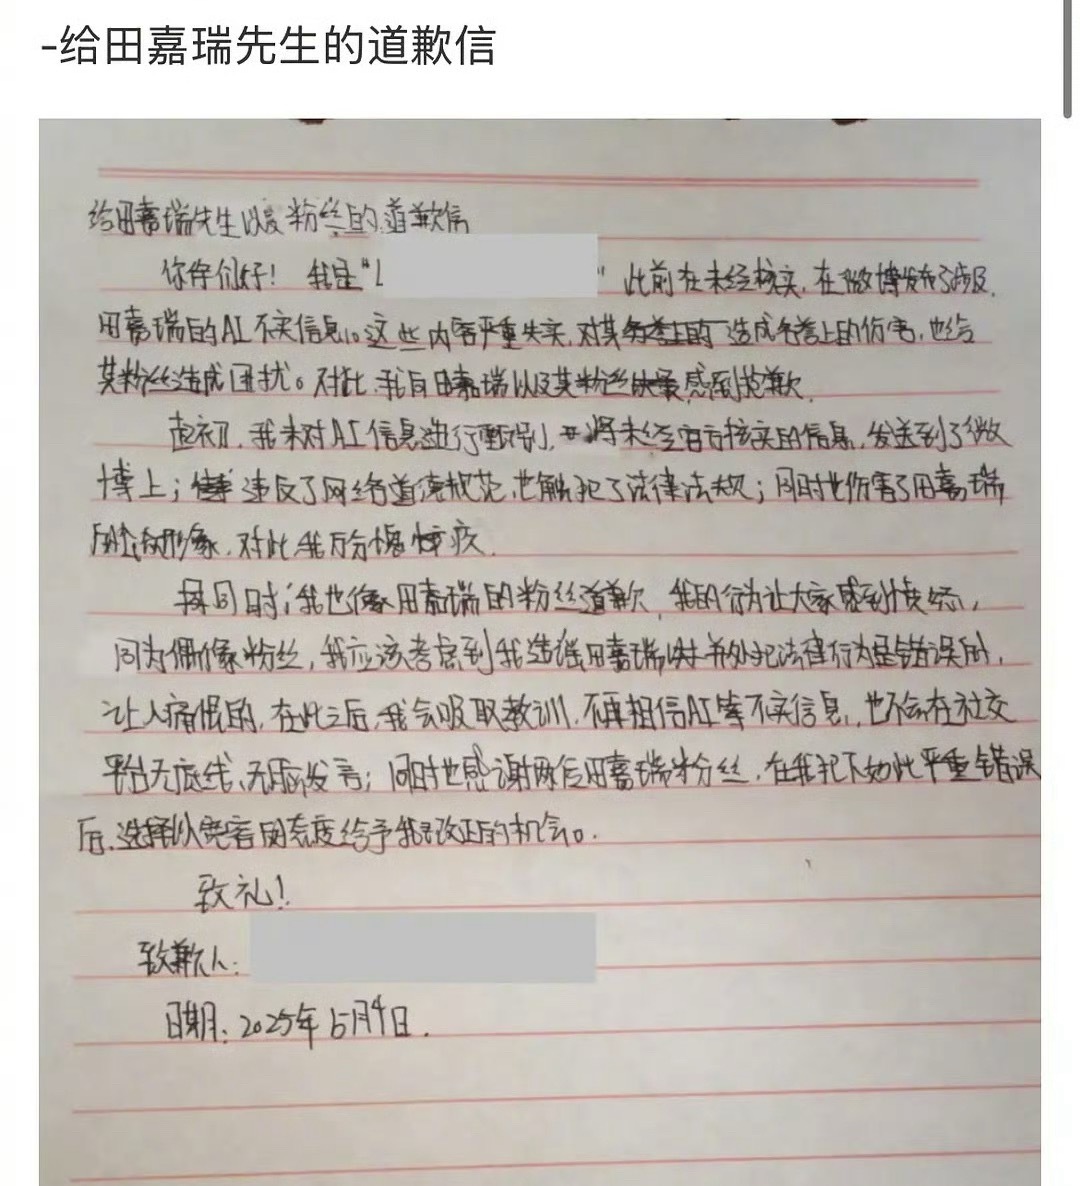 -给田嘉瑞先生的道歉信
给田嘉瑞先生以及粉丝的道歉信
你们好！我是“ ” 此前在未经核实，在微博发布了涉及
田嘉瑞的AI不实信息。这些内容严重失实，对其 造成名誉上的伤害，也给
其粉丝造成困扰。对此，我向田嘉瑞以及其粉丝 感到抱歉。
起初，我未对AI信息进行甄别，将未经官方核实的信息，发送到了微
博上；违反了网络道德规范，也触犯了法律法规；同时也伤害了田嘉瑞
的 形象，对此，我万分 疚。
同时，我也像田嘉瑞的粉丝道歉，我的行为让大家感到愤怒，
同为偶像粉丝，我应该考虑到我造谣田嘉瑞 犯法律行为是错误的，
让人痛恨的，在此之后，我会吸取教训，不再相信AI等不实信息，也不会在社交
平台无底线、无脑发言；同时也感谢两位田嘉瑞粉丝，在我犯下如此严重错误
后，选择以宽容的态度给予我改正的机会。
致礼！
致歉人：
日期：2025年5月4日.